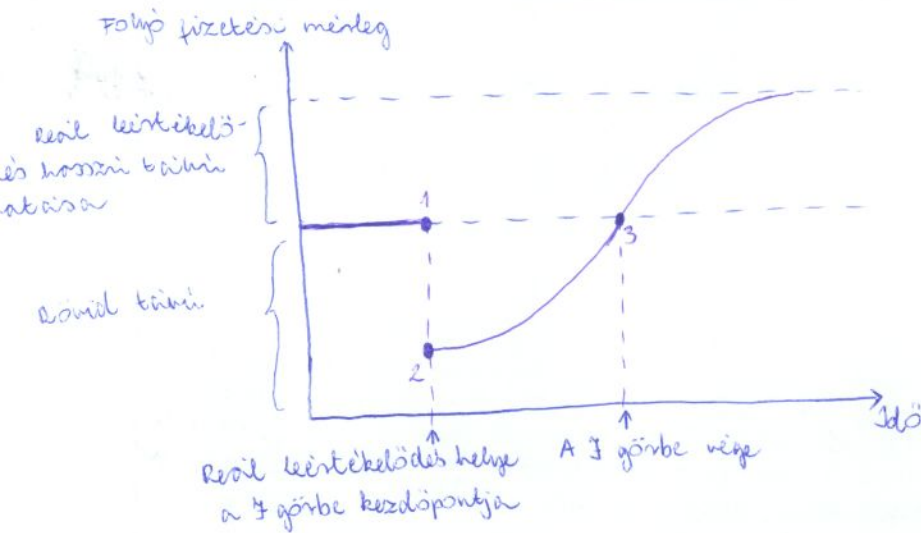 Folyó fizetési mérleg
Reál leértékelő-
és hosszú távú
hatása
1
3
Rövid távú
2
Idő
Reál leértékelődés helye
a J görbe kezdőpontja
A J görbe vége